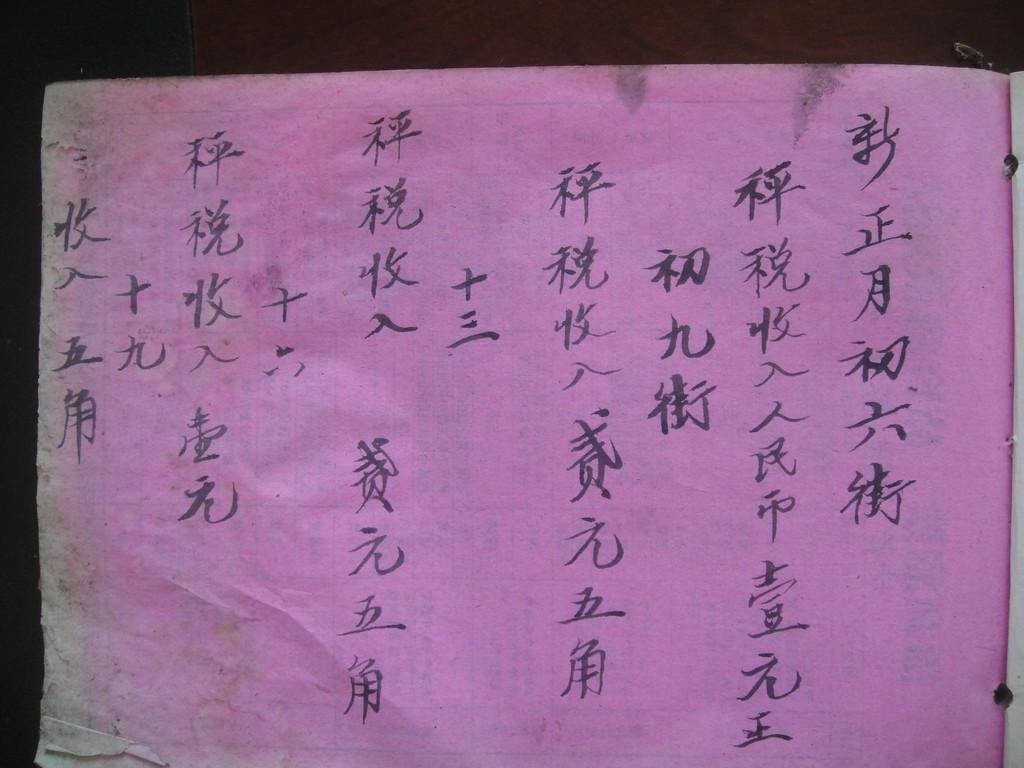 新正月初六街
秤税收入人民币壹元正
初九街
秤税收入贰元五角
十三
秤税收入 贰元五角
十六
秤税收入 壹元
十九
收入 五角